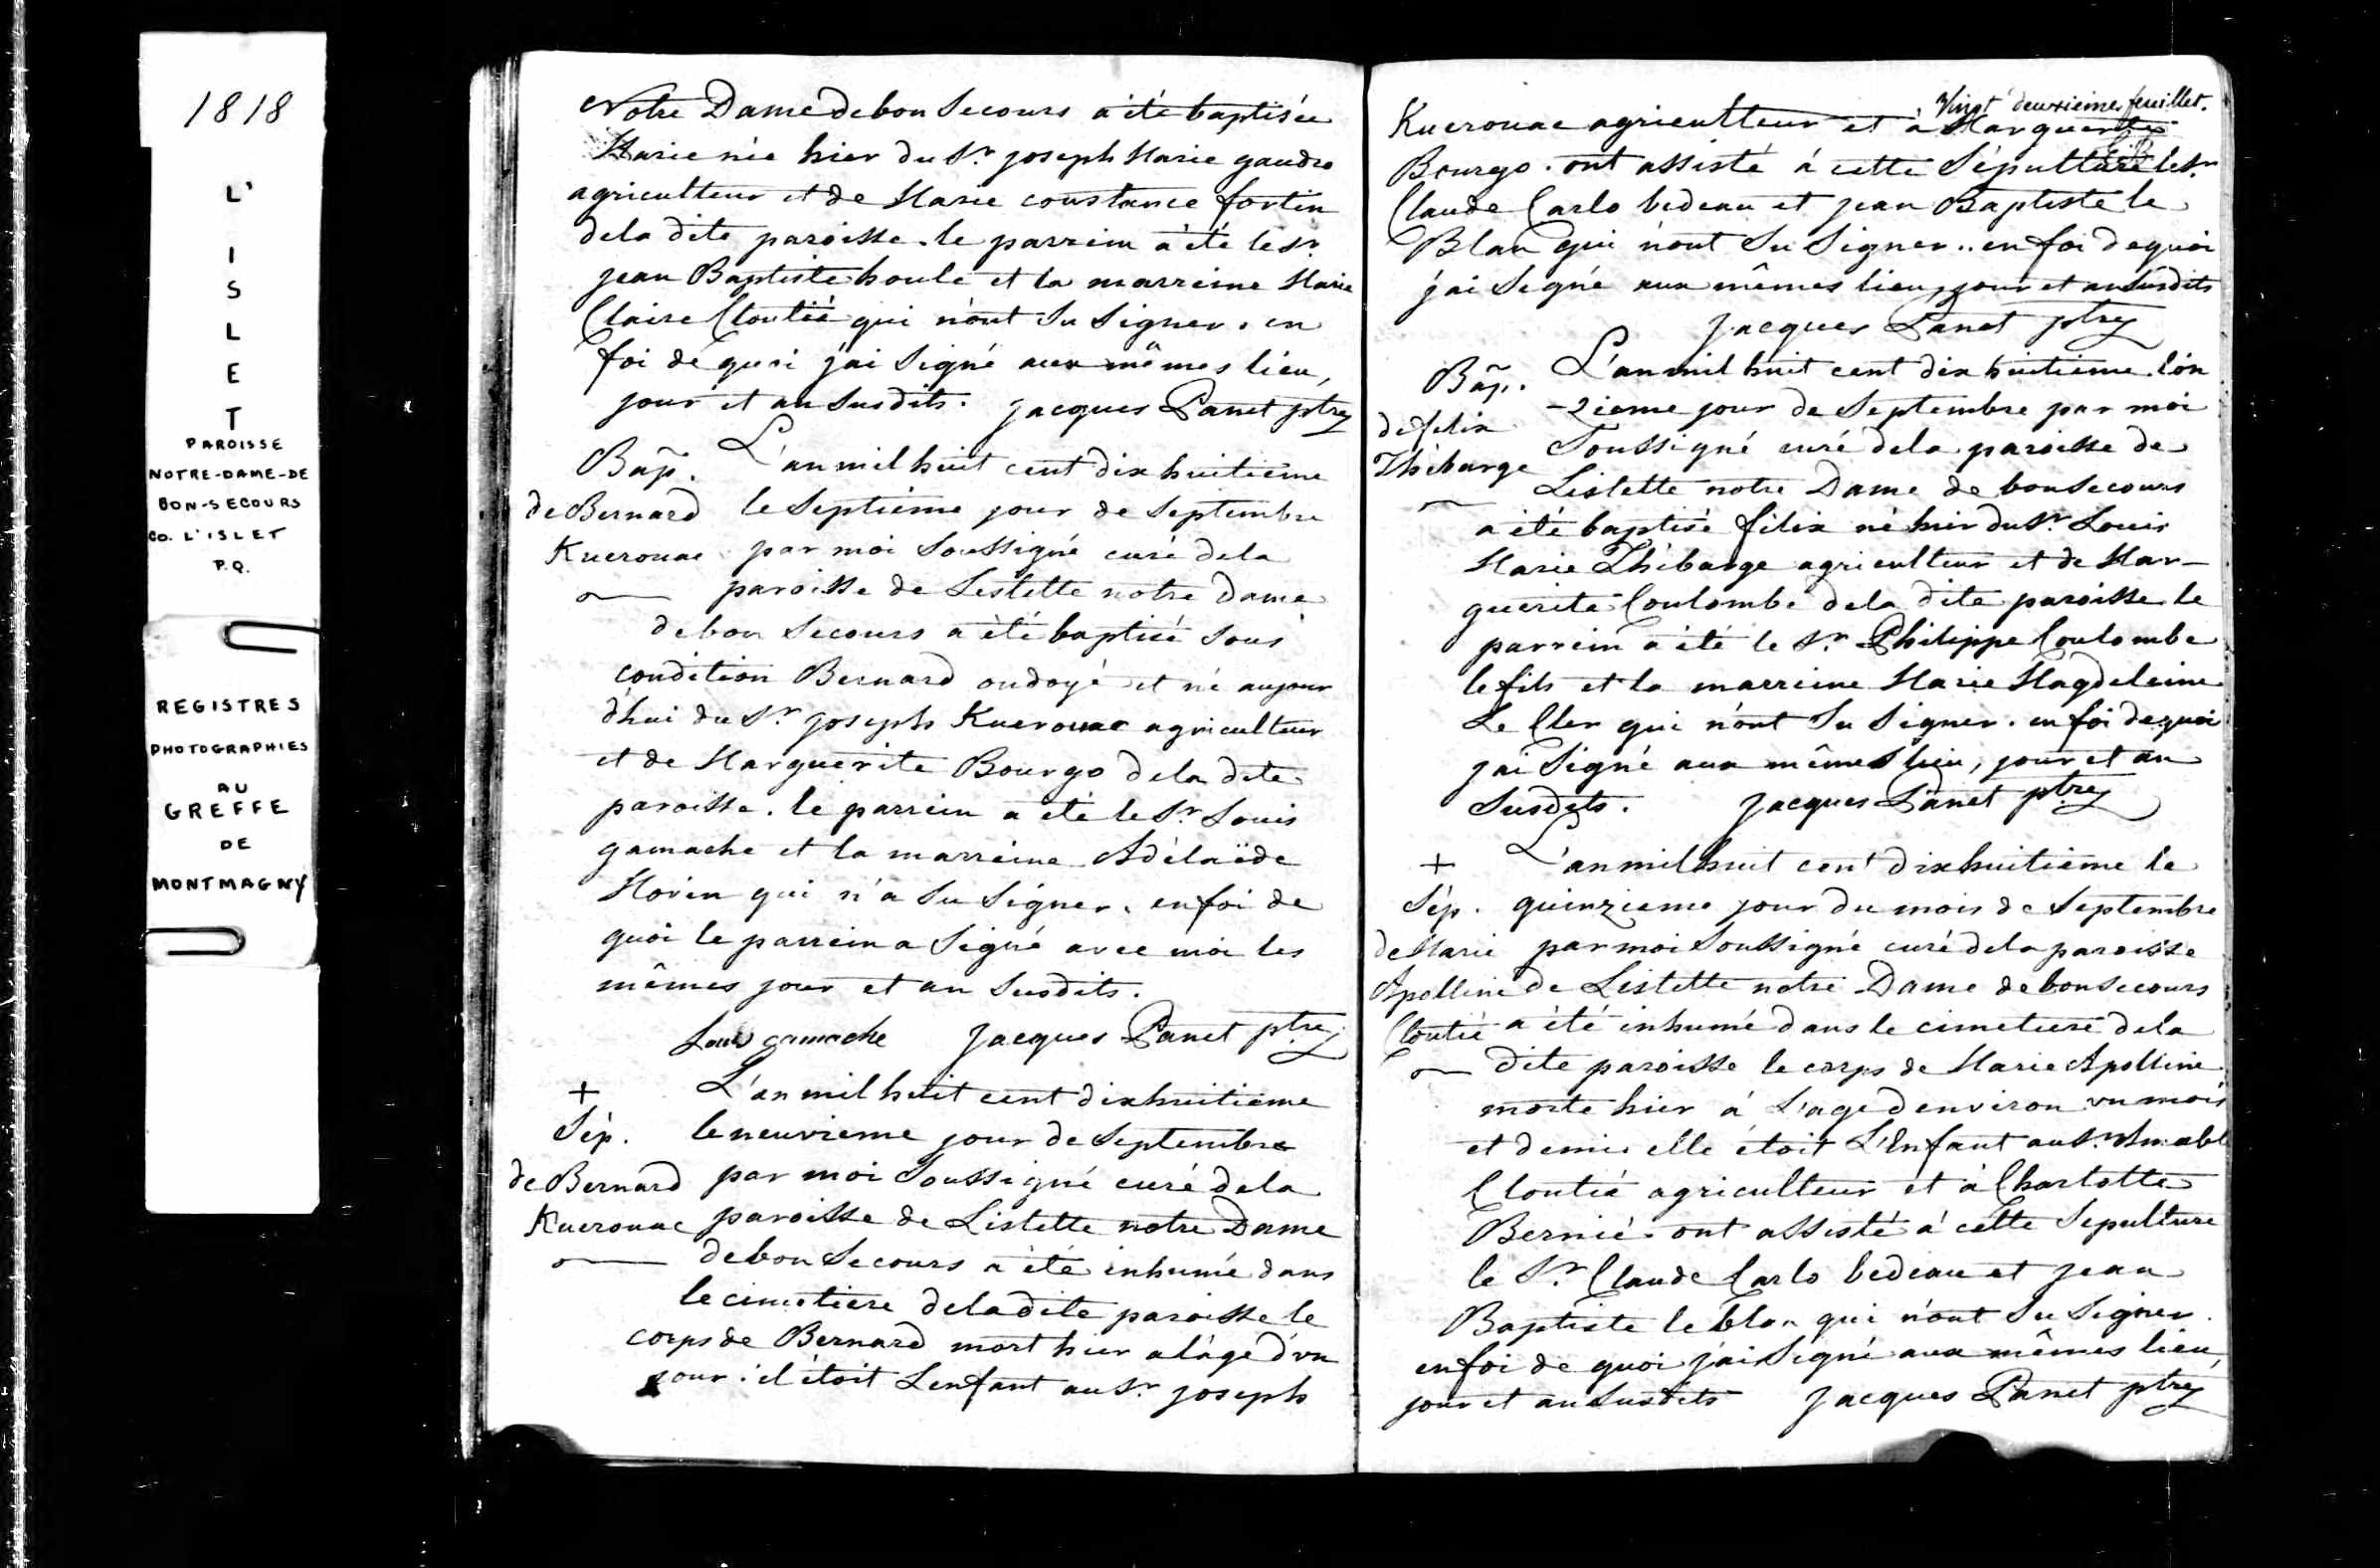 1818
L'
I
S
L
E
T
PAROISSE
NOTRE-DAME-DE
BON-SECOURS
CO. L'ISLET
P.Q.
REGISTRES
PHOTOGRAPHIES
AU
GREFFE
DE
MONTMAGNY
Notre Dame de bon Secours a été baptisée
Marie née hier du Sr. joseph Marie gaudro
agriculteur et de Marie constance fortin
dela dite paroisse. le parrein a été le Sr.
jean Baptiste houle et la marreine Marie
Claire Cloutié qui n'ont Su Signer. en
foi de quoi j'ai Signé aux mêmes lieu,
jour et an Susdits. Jacques Panet ptre
Bap. L'an mil huit cent dix huitieme
de Bernard le Septieme jour de Septembre
Kuerouac par moi Soussigné curé dela
paroisse de Lislette notre Dame
de bon Secours a été baptisé Sous
condition Bernard ondoyé et né aujour
d'hui du Sr. joseph Kuerouac agriculteur
et de Marguerite Bourgo dela dite
paroisse. le parrein a été le Sr. Louis
gamache et la marreine Adélaïde
Morin qui n'a Su Signer. en foi de
quoi le parrein a Signé avec moi les
mêmes jour et an Susdits.
Louis gamache Jacques Panet ptre
+ L'an mil huit cent dixhuitieme
Sép. le neuvieme jour de Septembre
de Bernard par moi Soussigné curé dela
Kuerouac paroisse de Lislette notre Dame
de bon Secours a été inhumé dans
le cimetiere dela dite paroisse le
corps de Bernard mort hier a l'âge d'vn
jour: il étoit L'enfant au Sr. joseph
Vingt deuxieme feuillet.
Kuerouac agriculteur et à Marguerite
Bourgo. ont assisté à cette Sépulture le Sr.
Claude Carlo bedeau et jean Baptiste le
Blan qui n'ont Su Signer.. en foi de quoi
j'ai Signé aux mêmes lieu, jour et an Susdits
Jacques Panet ptre
Bap. L'an mil huit cent dix huitieme. l'on
-zieme jour de Septembre par moi
de felix Soussigné curé dela paroisse de
Thiberge Lislette notre Dame de bon Secours
a été baptisé félix né hier du Sr. Louis
Marie Thiberge agriculteur et de Mar-
guerite Coulombe dela dite paroisse. le
parrein a été le Sr. Philippe Coulombe
le fils et la marreine Marie Magdeleine
Le Cler qui n'ont Su Signer. en foi de quoi
j'ai Signé aux mêmes lieu, jour et an
Susdits. Jacques Panet ptre
+ L'an mil huit cent dixhuitieme le
Sép. quinzieme jour du mois de Septembre
de Marie par moi Soussigné curé dela paroisse
Apolline de Lislette notre Dame de bon Secours
Cloutié a été inhumé dans le cimetiere dela
dite paroisse le corps de Marie Apolline
morte hier à L'age d'environ vn mois
et demi. elle étoit L'Enfant au Sr. Amable
Cloutié agriculteur et à Charlotte
Bernié. ont assisté à cette Sepulture
le Sr. Claude Carlo bedeau et jean
Baptiste le blan qui n'ont Su Signer.
en foi de quoi j'ai Signé aux mêmes lieu,
jour et an Susdits Jacques Panet ptre